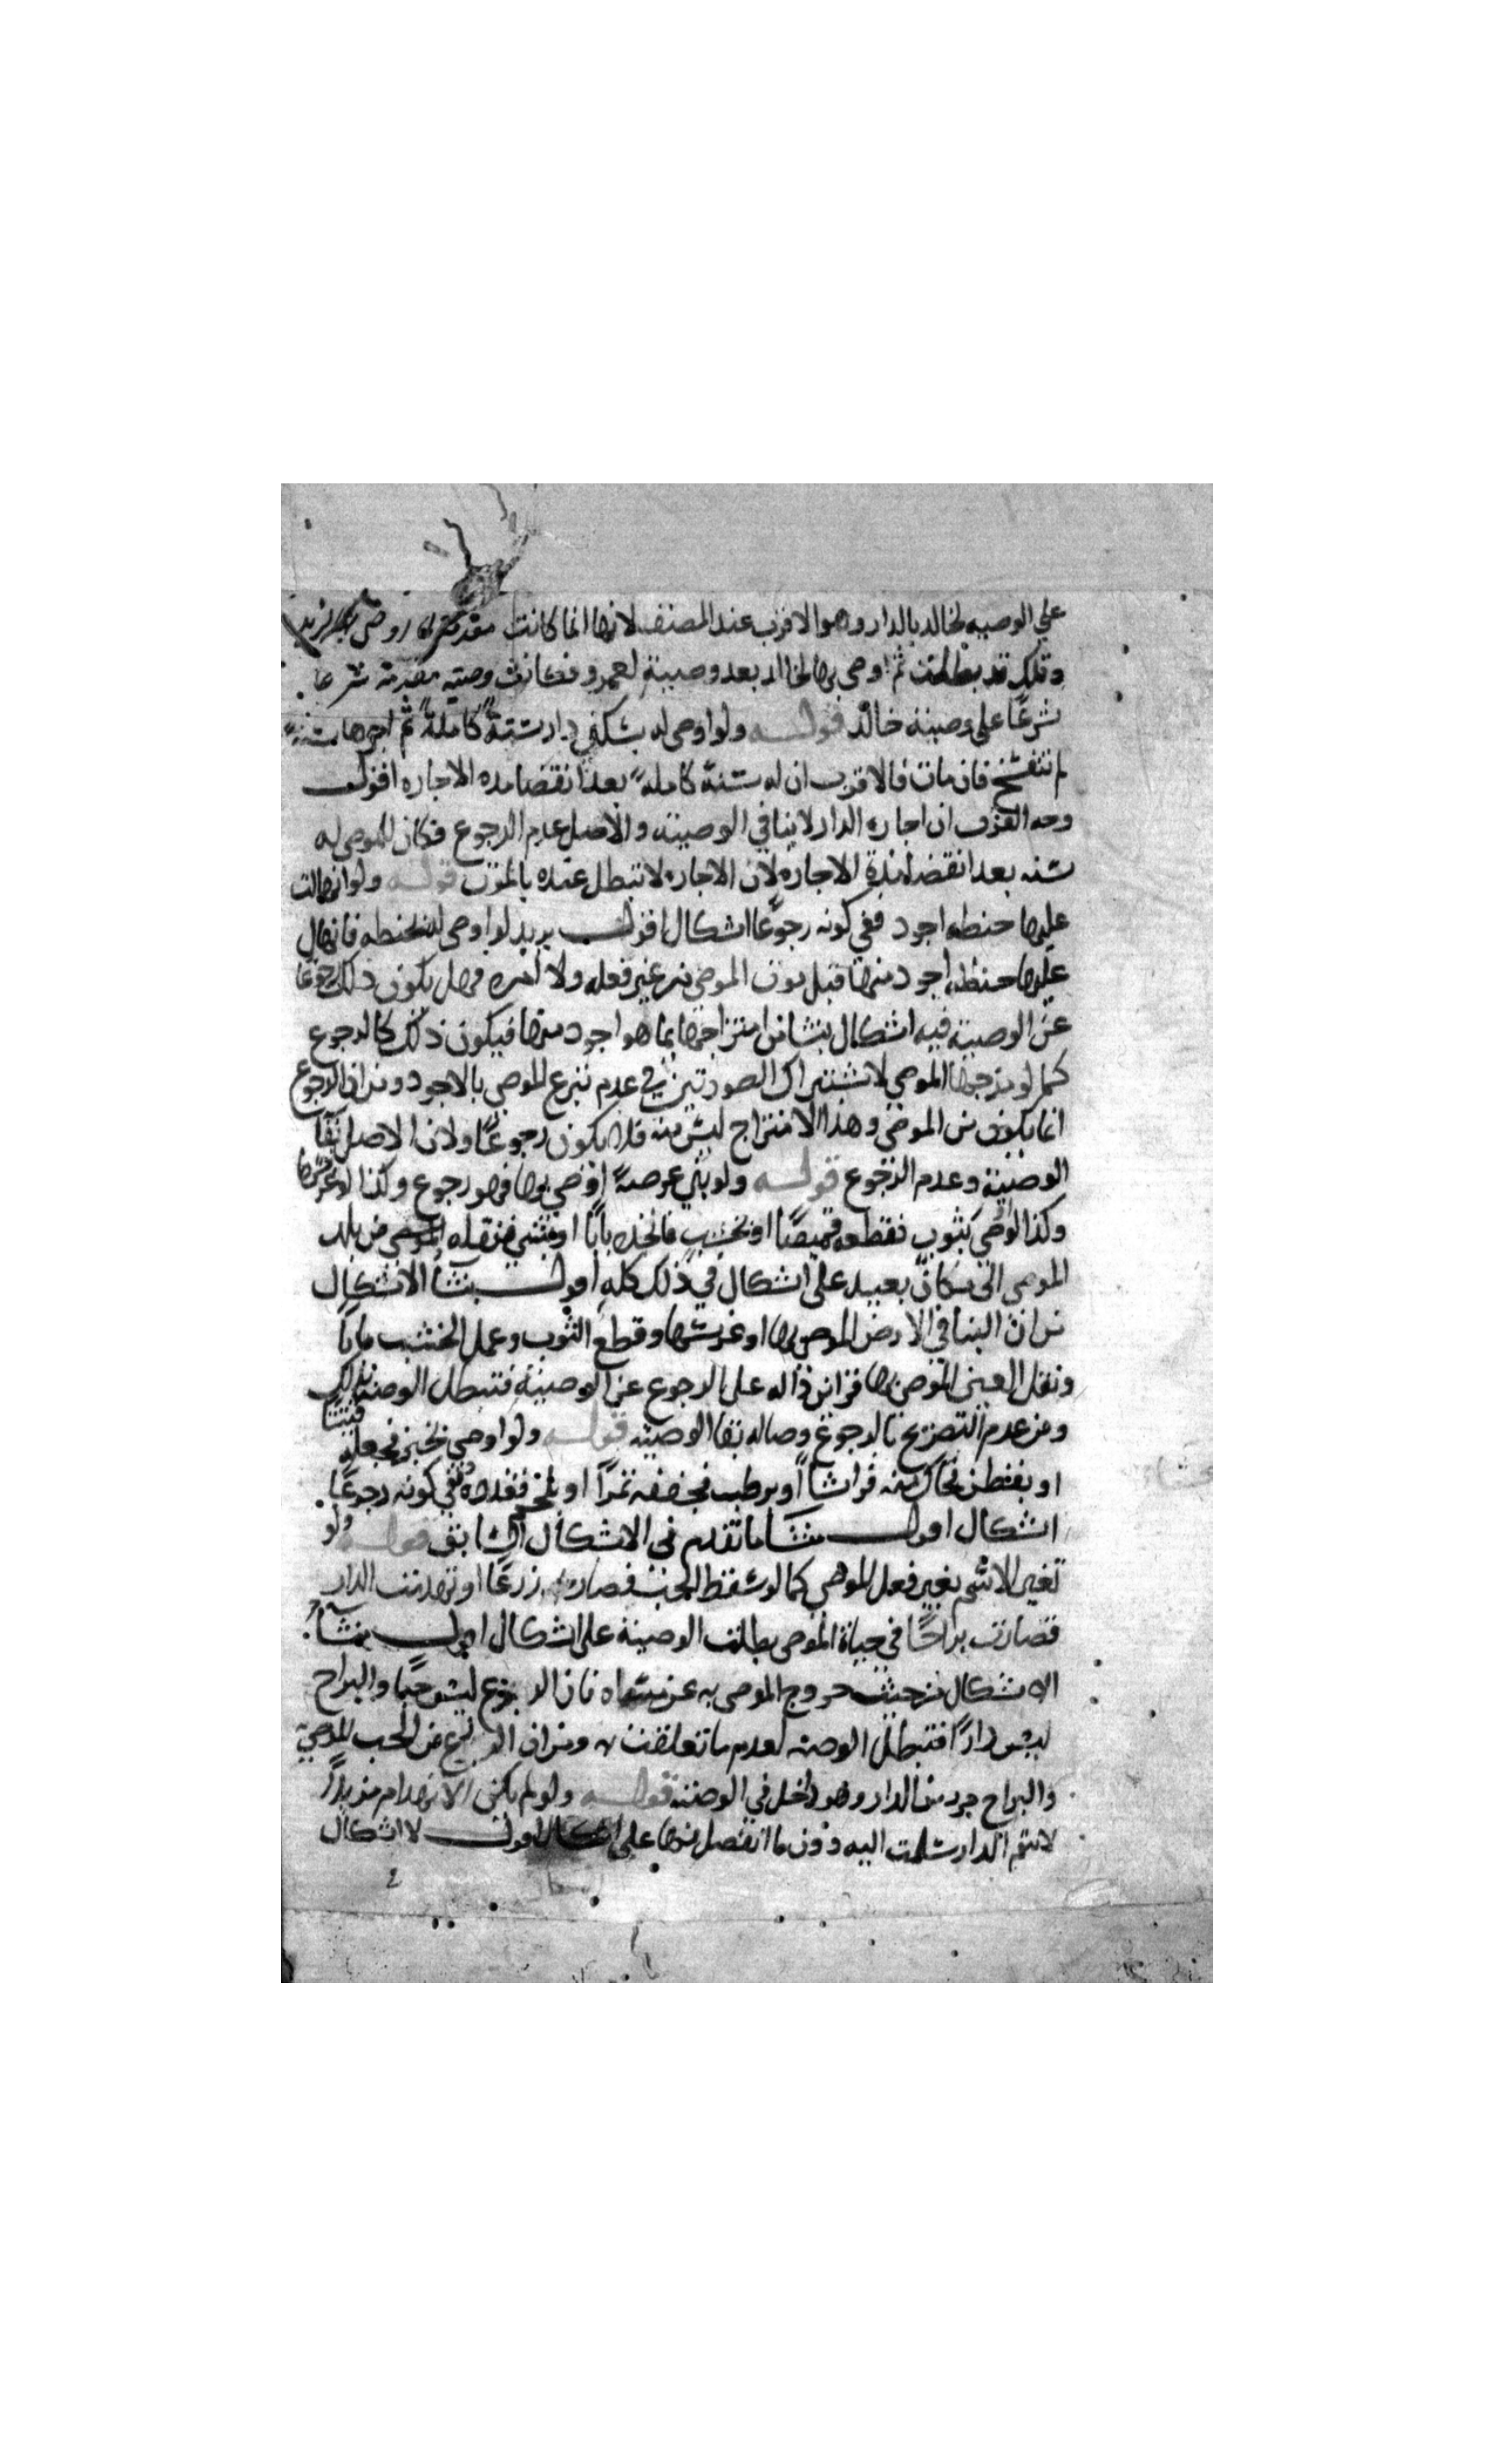 علي الوصيه لخالد بالدار وهو الاقرب عند المصنف لانها انما كانت
وتلك قد بطلت ثم اوصى بها لخالد بعد وصيته لعمرو فكانت وصيته مقدمة شرعا
شرعًا على وصيته خالد قولـــه ولو اوصى له بسكنى دار سنةً كاملةً ثم اجرها سنةً
لم تنفسخ فان مات فالاقرب ان له سنة كاملةً بعد انقضا مده الاجاره اقول
وجه القرب ان اجاره الدار لا ينافي الوصيته والاصل عدم الرجوع فكان للموصى له
سنه بعد انقضا مدة الاجاره لان الاجاره لا تبطل عنده بالموت قولـــه ولو انهالت
عليها حنطه اجود ففي كونه رجوعًا اشكال اقول يريد لو اوصى له بحنطه فانهال
عليها حنطه اجود منها قبل موت الموصي من غير فعله ولا امره فهل يكون ذلك رجوعًا
عن الوصيته فيه اشكال ينشا من امتزاجها بما هو اجود منها فيكون ذلك كالرجوع
كما لو مزجها الموصي لاشتراك الصورتين في عدم تبرع الموصي بالاجود ومن ان الرجوع
انما يكون من الموصي وهذا الامتزاج ليس منه فلا يكون رجوعًا ولان الاصل بقا
الوصيته وعدم الرجوع قولـــه ولو بنى عرصةً اوصى بها فهو رجوع وكذا لو غرسها
وكذا لو اوصى بثوب فقطعه قميصًا او بخشب فاتخذه بابًا او بشي فنقله الموصي من بلد
الموصي الى مكان بعيد على اشكال في ذلك كله اقول ينشا الاشكال
من ان البنا في الارض الموصى بها او غرسها وقطع الثوب وعمل الخشب بابًا
ونقل العين الموصى بها قراين داله على الرجوع عن الوصيته فتبطل الوصيه بذلك
ومن عدم التصريح بالرجوع وصاله بقا الوصيته قولـــه ولو اوصى بخبز فجعله فتيتا
او بقطن فحاك منه فراشًا او برطب فجففه تمرًا او بلحم فقدده ففي كونه رجوعًا
اشكال اقول منشا ما تقدم في الاشكال السابق قولـــه ولو
تغير الاسم بغير فعل الموصي كما لو سقط الحب فصار زرعًا او تهدمت الدار
فصارت براحًا في حياة الموصي بطلت الوصيته على اشكال اقول ينشا
الاشكال من حيث خروج الموصى به عن مسماه فان الزرع ليس حبًا والبراح
ليس دارًا فتبطل الوصيه لعدم ما تعلقت به ومن ان الزرع من الحب الموصى به
والبراح جزء من الدار وهو داخل في الوصيته قولـــه ولو لم يكن الانهدام مزيلًا
لاسم الدار سلمت اليه دون ما انفصل منها على اشكال اقول لا اشكال